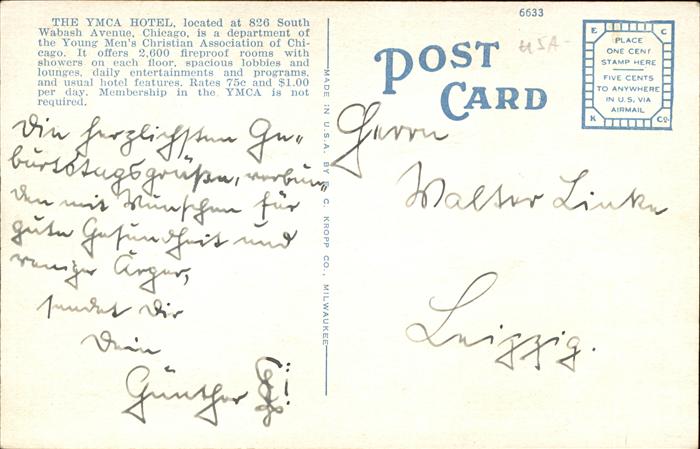 THE YMCA HOTEL, located at 826 South
Wabash Avenue, Chicago, is a department of
the Young Men's Christian Association of Chi-
cago. It offers 2,600 fireproof rooms with
showers on each floor, spacious lobbies and
lounges, daily entertainments and programs,
and usual hotel features. Rates 75c and $1.00
per day. Membership in the YMCA is not
required.
Die herzlichsten Ge-
burtstagsgrüße, verbun-
den mit Wünschen für
gute Gesundheit und
weniger Ärger,
sendet Dir
Dein
Günther
MADE IN U.S.A. BY E. C. KROPP CO., MILWAUKEE
6633
USA-
POST
CARD
E C
PLACE
ONE CENT
STAMP HERE
FIVE CENTS
TO ANYWHERE
IN U.S. VIA
AIRMAIL
K Co.
Herrn
Walter Linke
Leipzig.